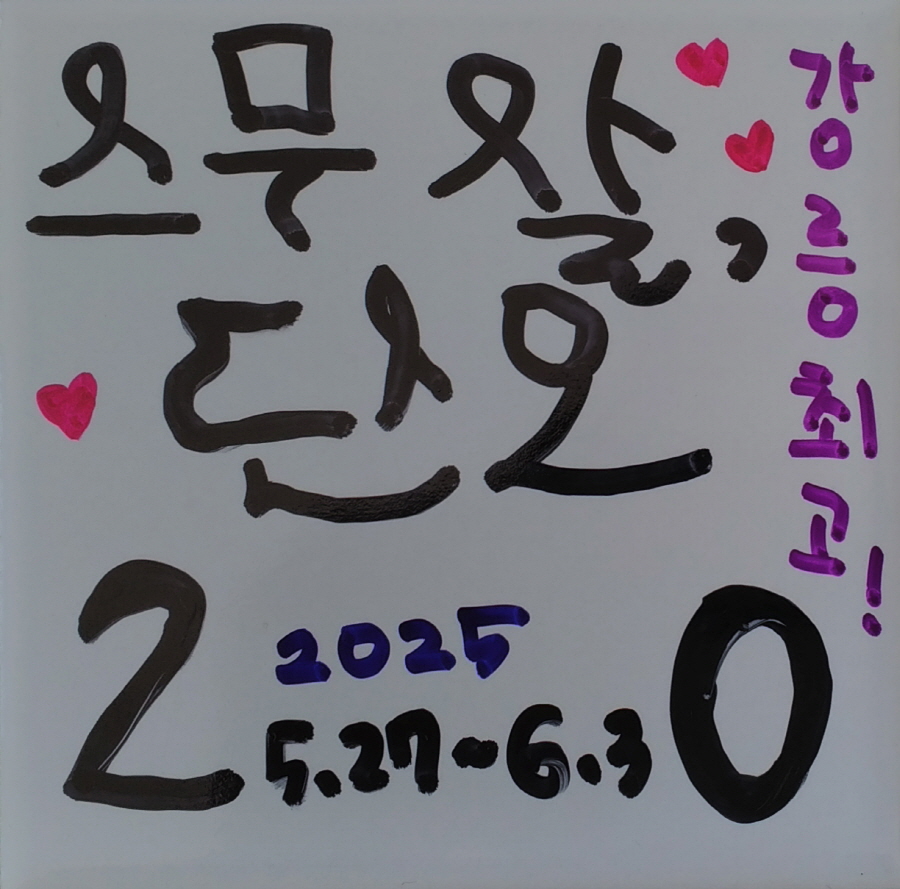 스무 살,
단오
20
2025
5.27~6.3
강릉최고!